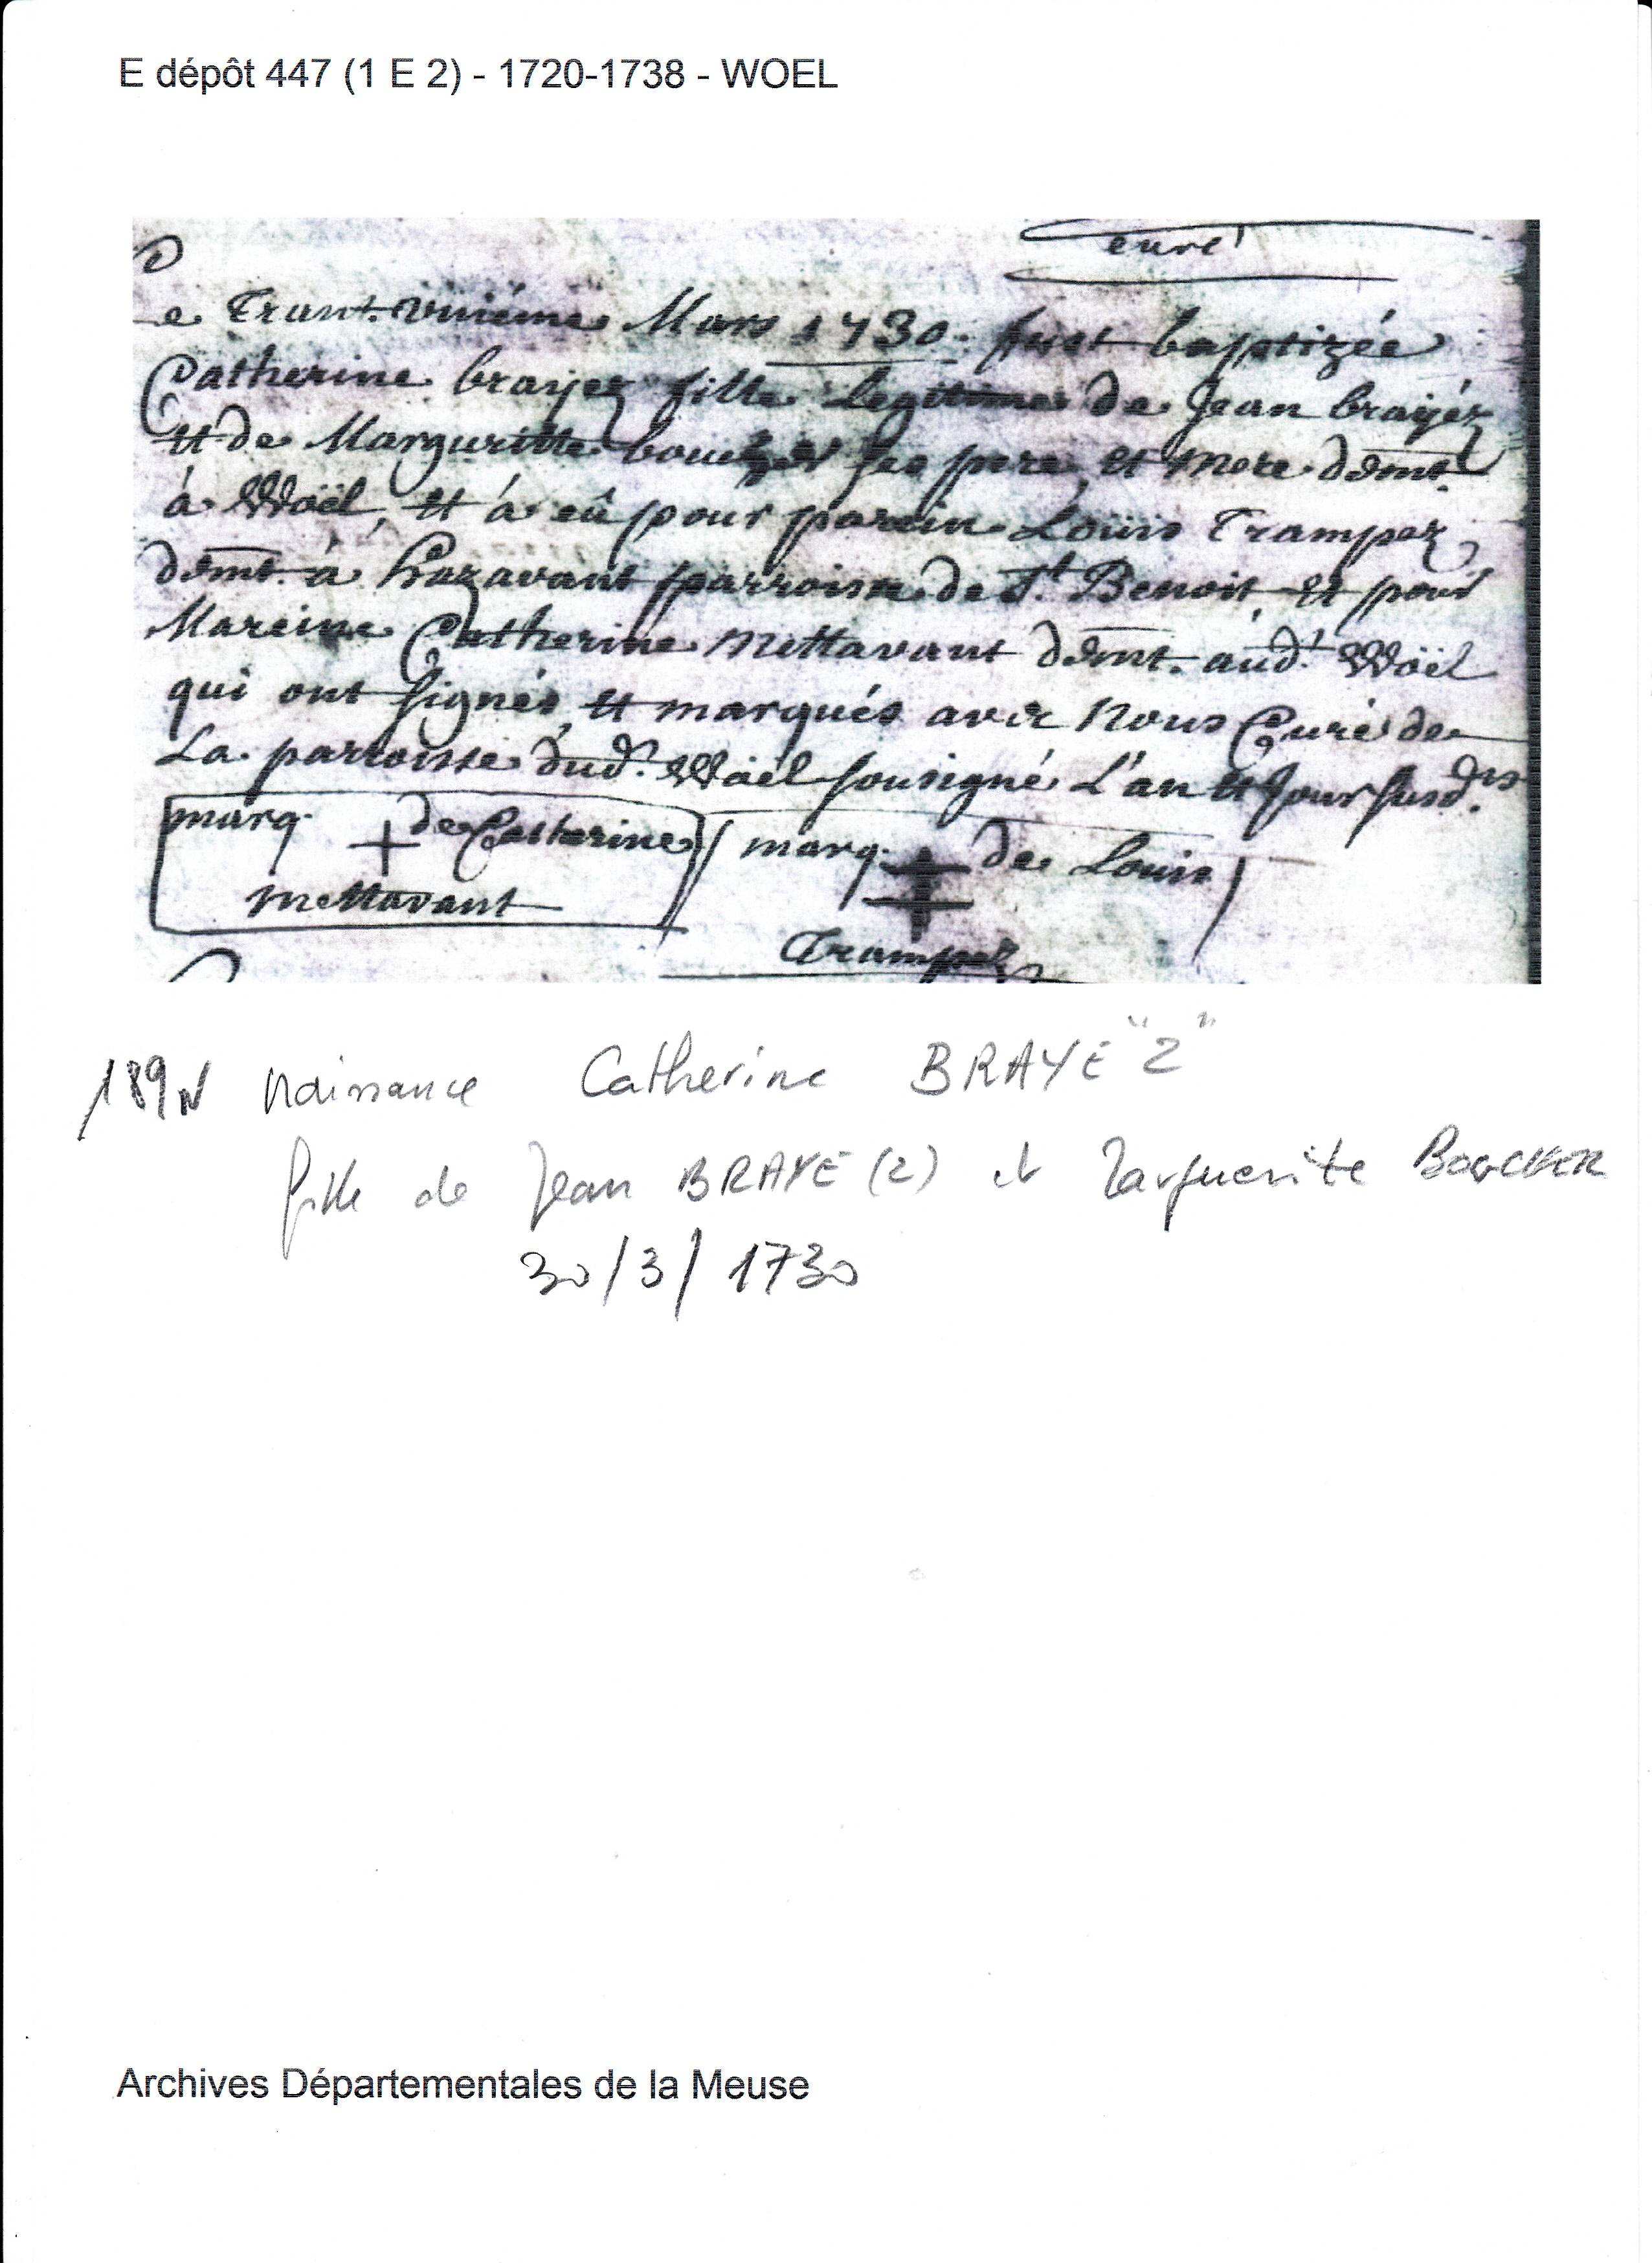 E dépôt 447 (1 E 2) - 1720-1738 - WOEL
curé
Le Trant-uniéme Mars 1730. fust baptizée
Catherine brayez fille legittime de Jean brayéz
et de Marguritte ses pere et mere demt.
à Wöel, et à eû pour parein Loüis Trampez
demt. à hazavant parroisse de St. Benoit, et pour
Mareine Catherine Mettavant demt. aud.t Wöel
qui ont signés et marqués avec Nous Curé de
La parroisse dud.t Wöel sousigné L'an et Jour susd.ts
marq. + de Catherine marq. de Louis
Mettavant
Trampez
189N Naissance Catherine BRAYÉ "Z"
fille de Jean BRAYÉ (Z) et Marguerite BOUCHER
30/3/1730
Archives Départementales de la Meuse